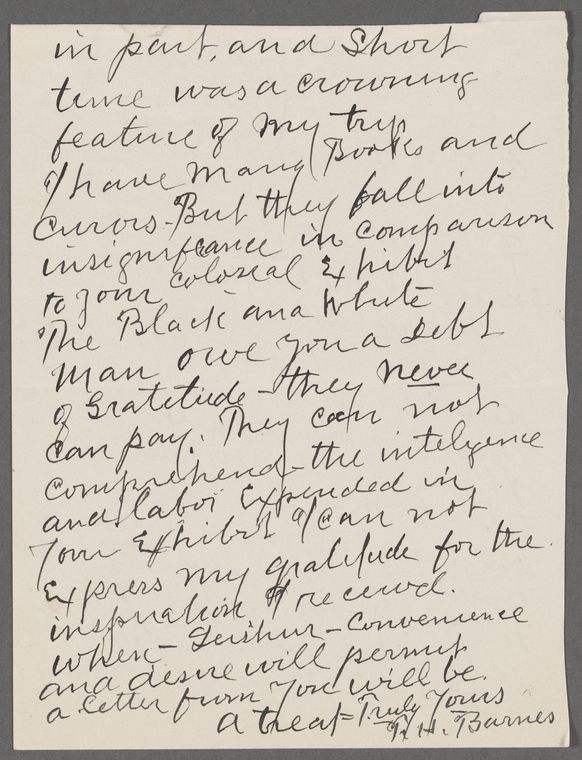 in part, and Short
time was a crowning
feature of my trip
I have many Books and
Curios - But they fall into
insignificance in comparison
to your colosal Exhibit
The Black and White
Man owe you a Debt
of Gratitude - they never
can pay. They can not
comprehend - the inteligence
and labor Expended in
Your Exhibit I can not
Express my gratitude for the
inspiration I received.
when - Leishur - Convenience
and desire will permit
a letter from You will be
a treat - Truly Yours
H. Barnes